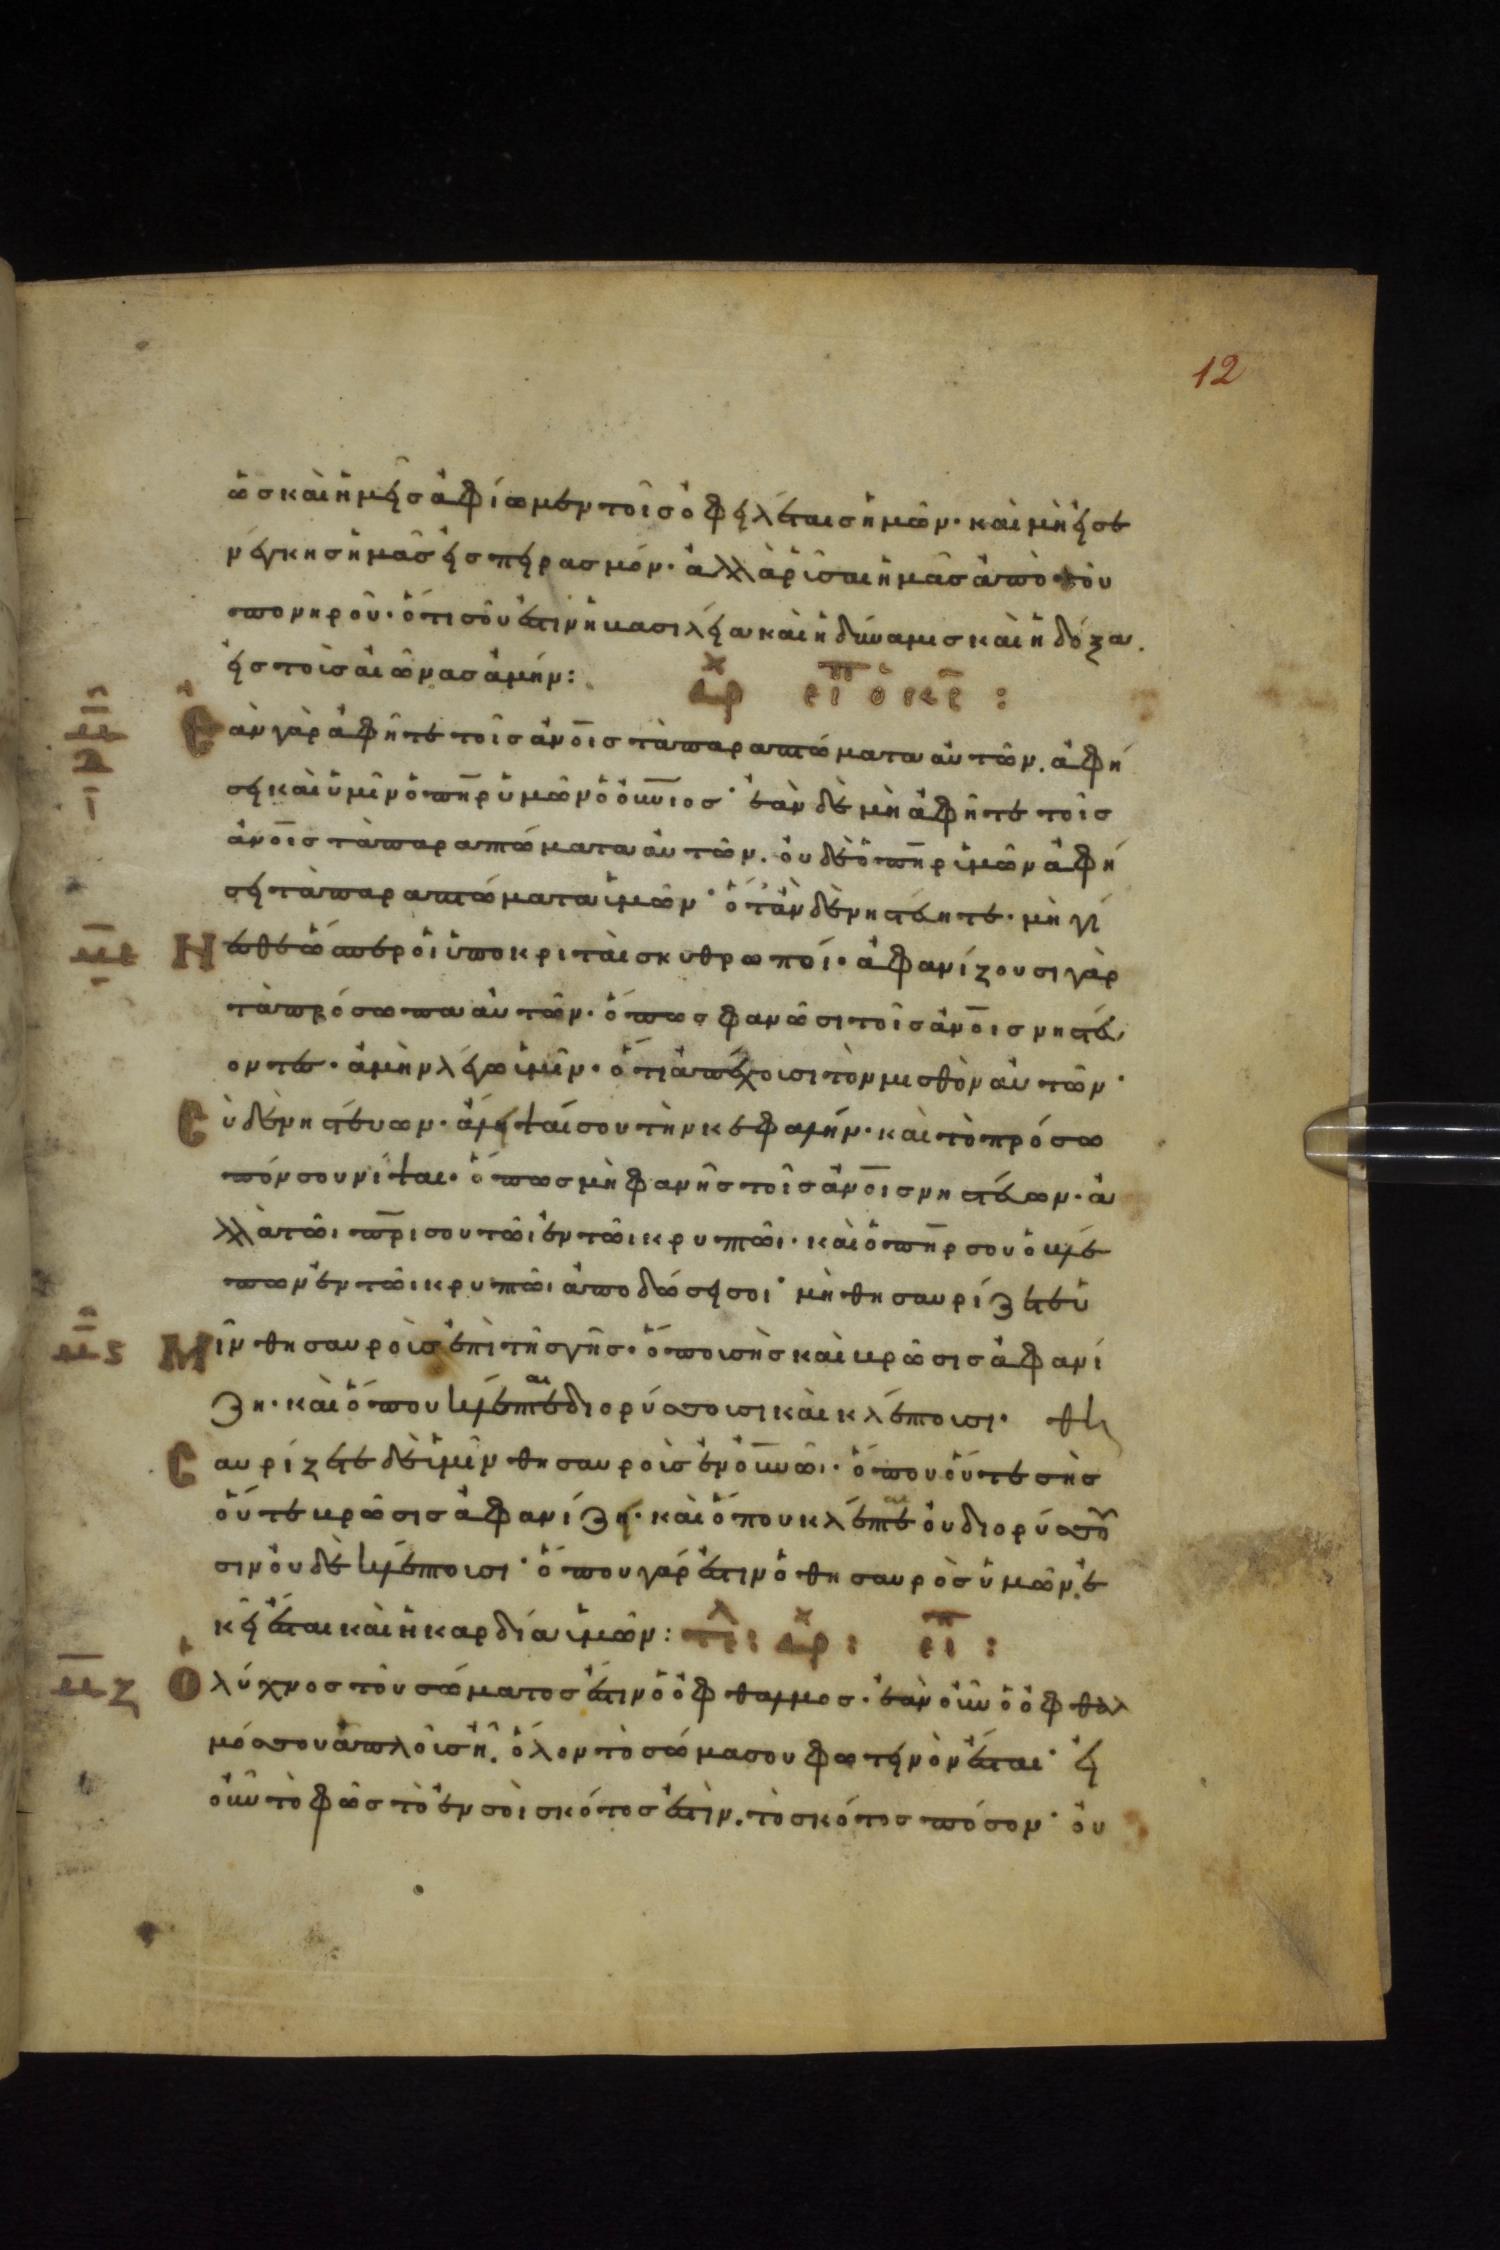 12
ὡς καὶ ἡμεῖς ἀφίωμεν τοῖς ὀφειλέταις ἡμῶν· καὶ μὴ εἰσε
νέγκης ἡμᾶς εἰς πειρασμόν· ἀλλὰ ῥῦσαι ἡμᾶς ἀπὸ τοῦ
πονηροῦ· ὅτι σοῦ ἐστιν ἡ βασιλεία καὶ ἡ δύναμις καὶ ἡ δόξα.
εἰς τοὺς αἰῶνας ἀμήν:
Ἐὰν γὰρ ἀφῆτε τοῖς ἀνοῖς τὰ παραπτώματα αὐτῶν. ἀφή
σει καὶ ὑμῖν ὁ πηρ ὑμῶν ὁ οὐνιος· ἐὰν δὲ μὴ ἀφῆτε τοῖς
ἀνοῖς τὰ παραπτώματα αὐτῶν. οὐδὲ ὁ πηρ ὑμῶν ἀφή
σει τὰ παραπτώματα ὑμῶν· ὅταν δὲ νηστεύητε· μὴ γί
Νεσθε ὥσπερ οἱ ὑποκριταὶ σκυθρωποί· ἀφανίζουσι γὰρ
τὰ πρόσωπα αὐτῶν· ὅπως φανῶσι τοῖς ἀνοῖς νηστεύ
οντες· ἀμὴν λέγω ὑμῖν· ὅτι ἀπέχουσι τὸν μισθὸν αὐτῶν·
Cὺ δὲ νηστεύων· ἄλειψαί σου τὴν κεφαλήν· καὶ τὸ πρόσω
πόν σου νίψαι· ὅπως μὴ φανῇς τοῖς ἀνοῖς νηστεύων· ἀ
λλὰ τῶι πρι σου τῶι ἐν τῶι κρυπτῶι· καὶ ὁ πηρ σου ὁ βλέ
πων ἐν τῶι κρυπτῶι ἀποδώσει σοι· μὴ θησαυρίζετε ὑ
Μῖν θησαυροὺς ἐπὶ τῆς γῆς· ὅπου σὴς καὶ βρῶσις ἀφανί
ζει· καὶ ὅπου κλέπται διορύσσουσι καὶ κλέπτουσι· θη
Cαυρίζετε δὲ ὑμῖν θησαυροὺς ἐν οὐνῶι· ὅπου οὔτε σὴς
οὔτε βρῶσις ἀφανίζει· καὶ ὅπου κλέπται οὐ διορύσσου
σιν οὐδὲ κλέπτουσι· ὅπου γάρ ἐστιν ὁ θησαυρὸς ὑμῶν, ἐ
κεῖ ἔσται καὶ ἡ καρδία ὑμῶν:
Ὁ λύχνος τοῦ σώματος ἐστιν ὁ ὀφθαλμος· ἐὰν οὖν ὁ ὀφθαλ
μός σου ἁπλοῦς ᾖ. ὅλον τὸ σῶμα σου φωτεινὸν ἔσται· εἰ
οὖν τὸ φῶς τὸ ἐν σοὶ σκότος ἐστὶν. τὸ σκότος πόσον· οὐ